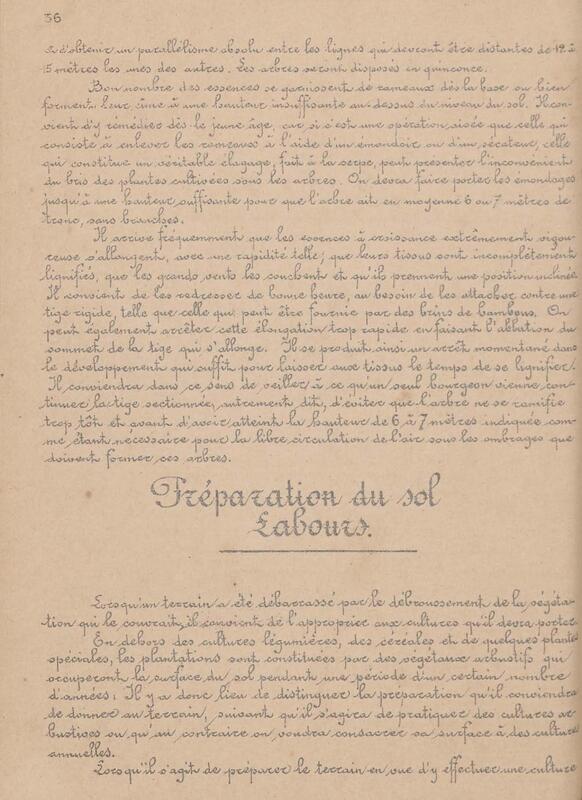 36
et d'obtenir un parallélisme absolu entre les lignes qui devront être distantes de 12 à
15 mètres les unes des autres. Les arbres seront disposés en quinconce.
Bon nombre des essences se garnissent de rameaux dès la base ou bien
forment leur cime à une hauteur insuffisante au-dessus du niveau du sol. Il con-
vient d'y remédier dès le jeune âge, car si c'est une opération aisée que celle qui
consiste à enlever les rameaux à l'aide d'un émondoir ou d'un sécateur, celle
qui constitue un véritable élagage, fait à la serpe, peut présenter l'inconvénient
du bris des plantes cultivées sous les arbres. On devra faire porter les émondages
jusqu'à une hauteur suffisante pour que l'arbre ait en moyenne 6 ou 7 mètres de
tronc, sans branches.
Il arrive fréquemment que les essences à croissance extrêmement vigou-
reuse s'allongent, avec une rapidité telle, que leurs tissus sont incomplètement
lignifiés, que les grands vents les couchent et qu'ils prennent une position inclinée.
Il convient de les redresser de bonne heure, au besoin de les attacher contre une
tige rigide, telle que celle qui peut être fournie par des brins de bambous. On
peut également arrêter cette élongation trop rapide en faisant l'ablation du
sommet de la tige qui s'allonge. Il se produit ainsi un arrêt momentané dans
le développement qui suffit pour laisser aux tissus le temps de se lignifier.
Il conviendra dans ce sens de veiller à ce qu'un seul bourgeon vienne con-
tinuer la tige sectionnée, autrement dit, d'éviter que l'arbre ne se ramifie
trop tôt et avant d'avoir atteint la hauteur de 6 à 7 mètres indiquée com-
me étant nécessaire pour la libre circulation de l'air sous les ombrages que
doivent former ces arbres.
Préparation du sol
Labours.
Lorsqu'un terrain a été débarrassé par le débroussement de la végéta-
tion qui le couvrait, il convient de l'approprier aux cultures qu'il devra porter.
En dehors des cultures légumières, des céréales et de quelques plantes
spéciales, les plantations sont constituées par des végétaux arbustifs qui
occuperont la surface du sol pendant une période d'un certain nombre
d'années; Il y a donc lieu de distinguer la préparation qu'il conviendra
de donner au terrain, suivant qu'il s'agira de pratiquer des cultures ar-
bustives ou qu'au contraire on voudra consacrer sa surface à des cultures
annuelles.
Lorsqu'il s'agit de préparer le terrain en vue d'y effectuer une culture